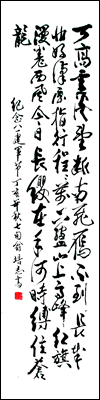 天高雲淡望斷南飛雁不到長城
非好漢屈指行程二萬六盤山上高峰紅旗
漫卷西風今日長纓在手何時縛住蒼
龍
紀念八一建軍節丁亥年秋七旬翁培志書